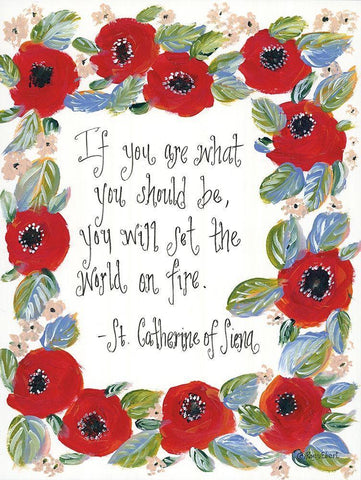 If you are what
you should be,
you will set the
world on fire.
-St. Catherine of Siena